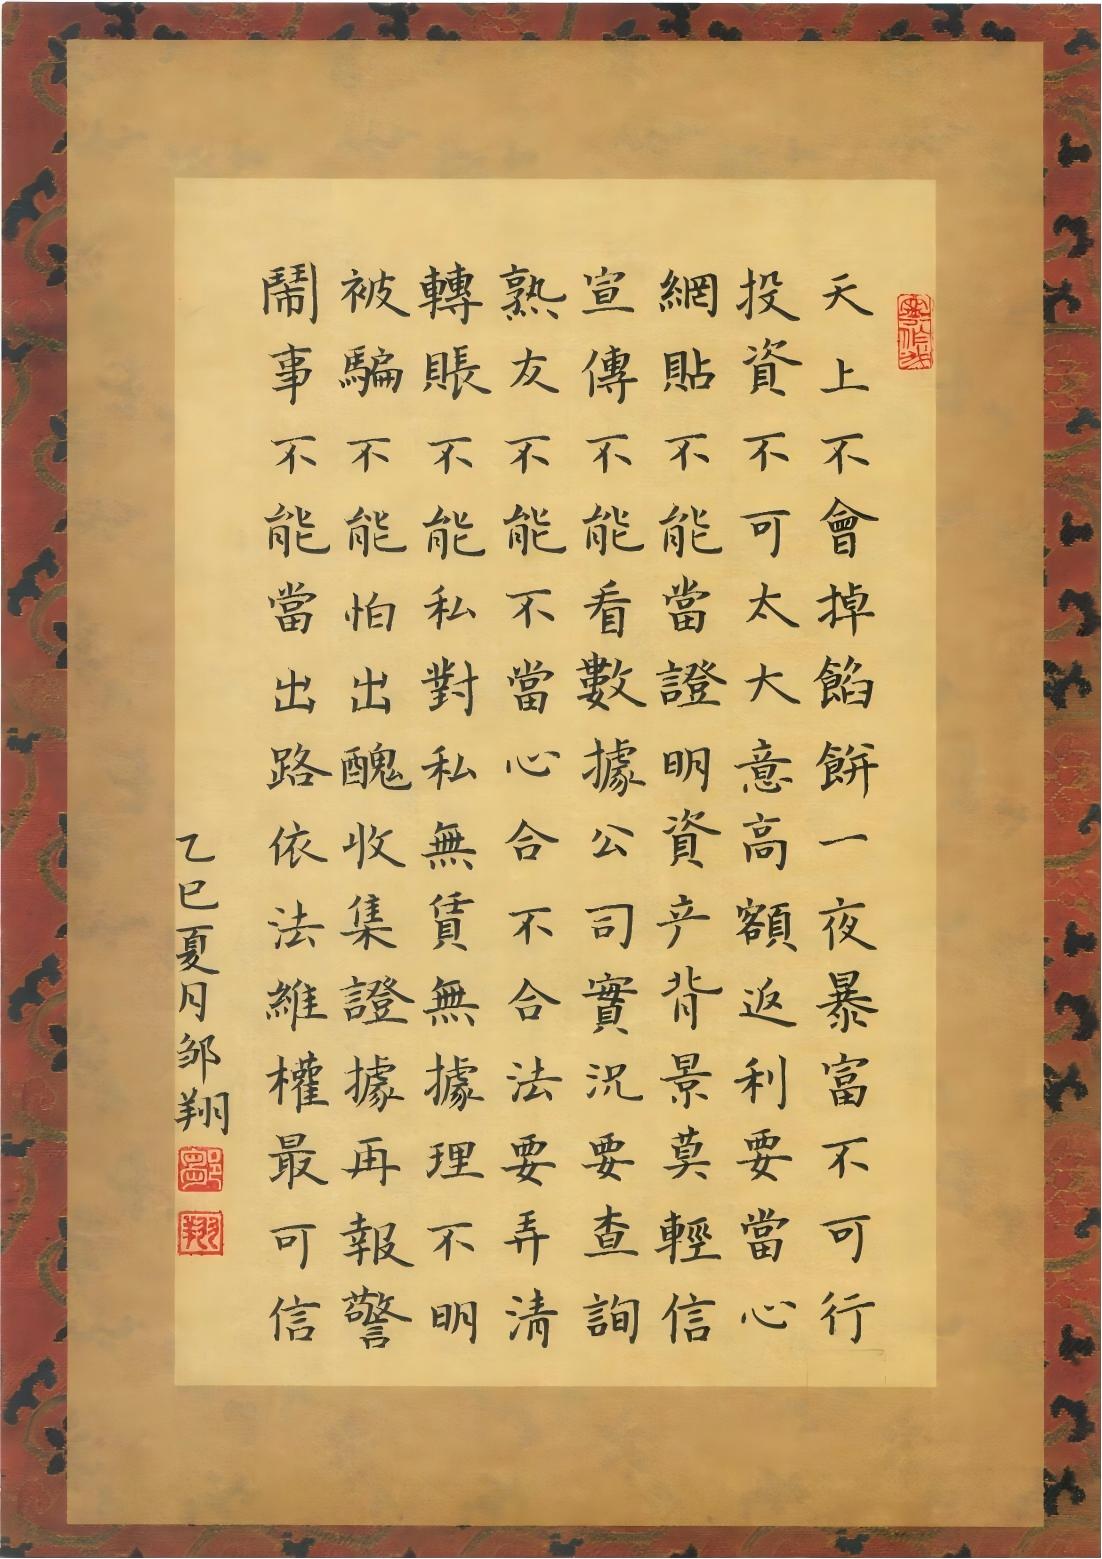 天上不會掉餡餅一夜暴富不可行
投資不可太大意高額返利要當心
網貼不能當證明資产背景莫輕信
宣傳不能看數據公司實況要查詢
熟友不能不當心合不合法要弄清
轉賬不能私對私無賃無據理不明
被騙不能怕出醜收集證據再報警
鬧事不能當出路依法維權最可信
乙巳夏月邹翔
鄒
翔